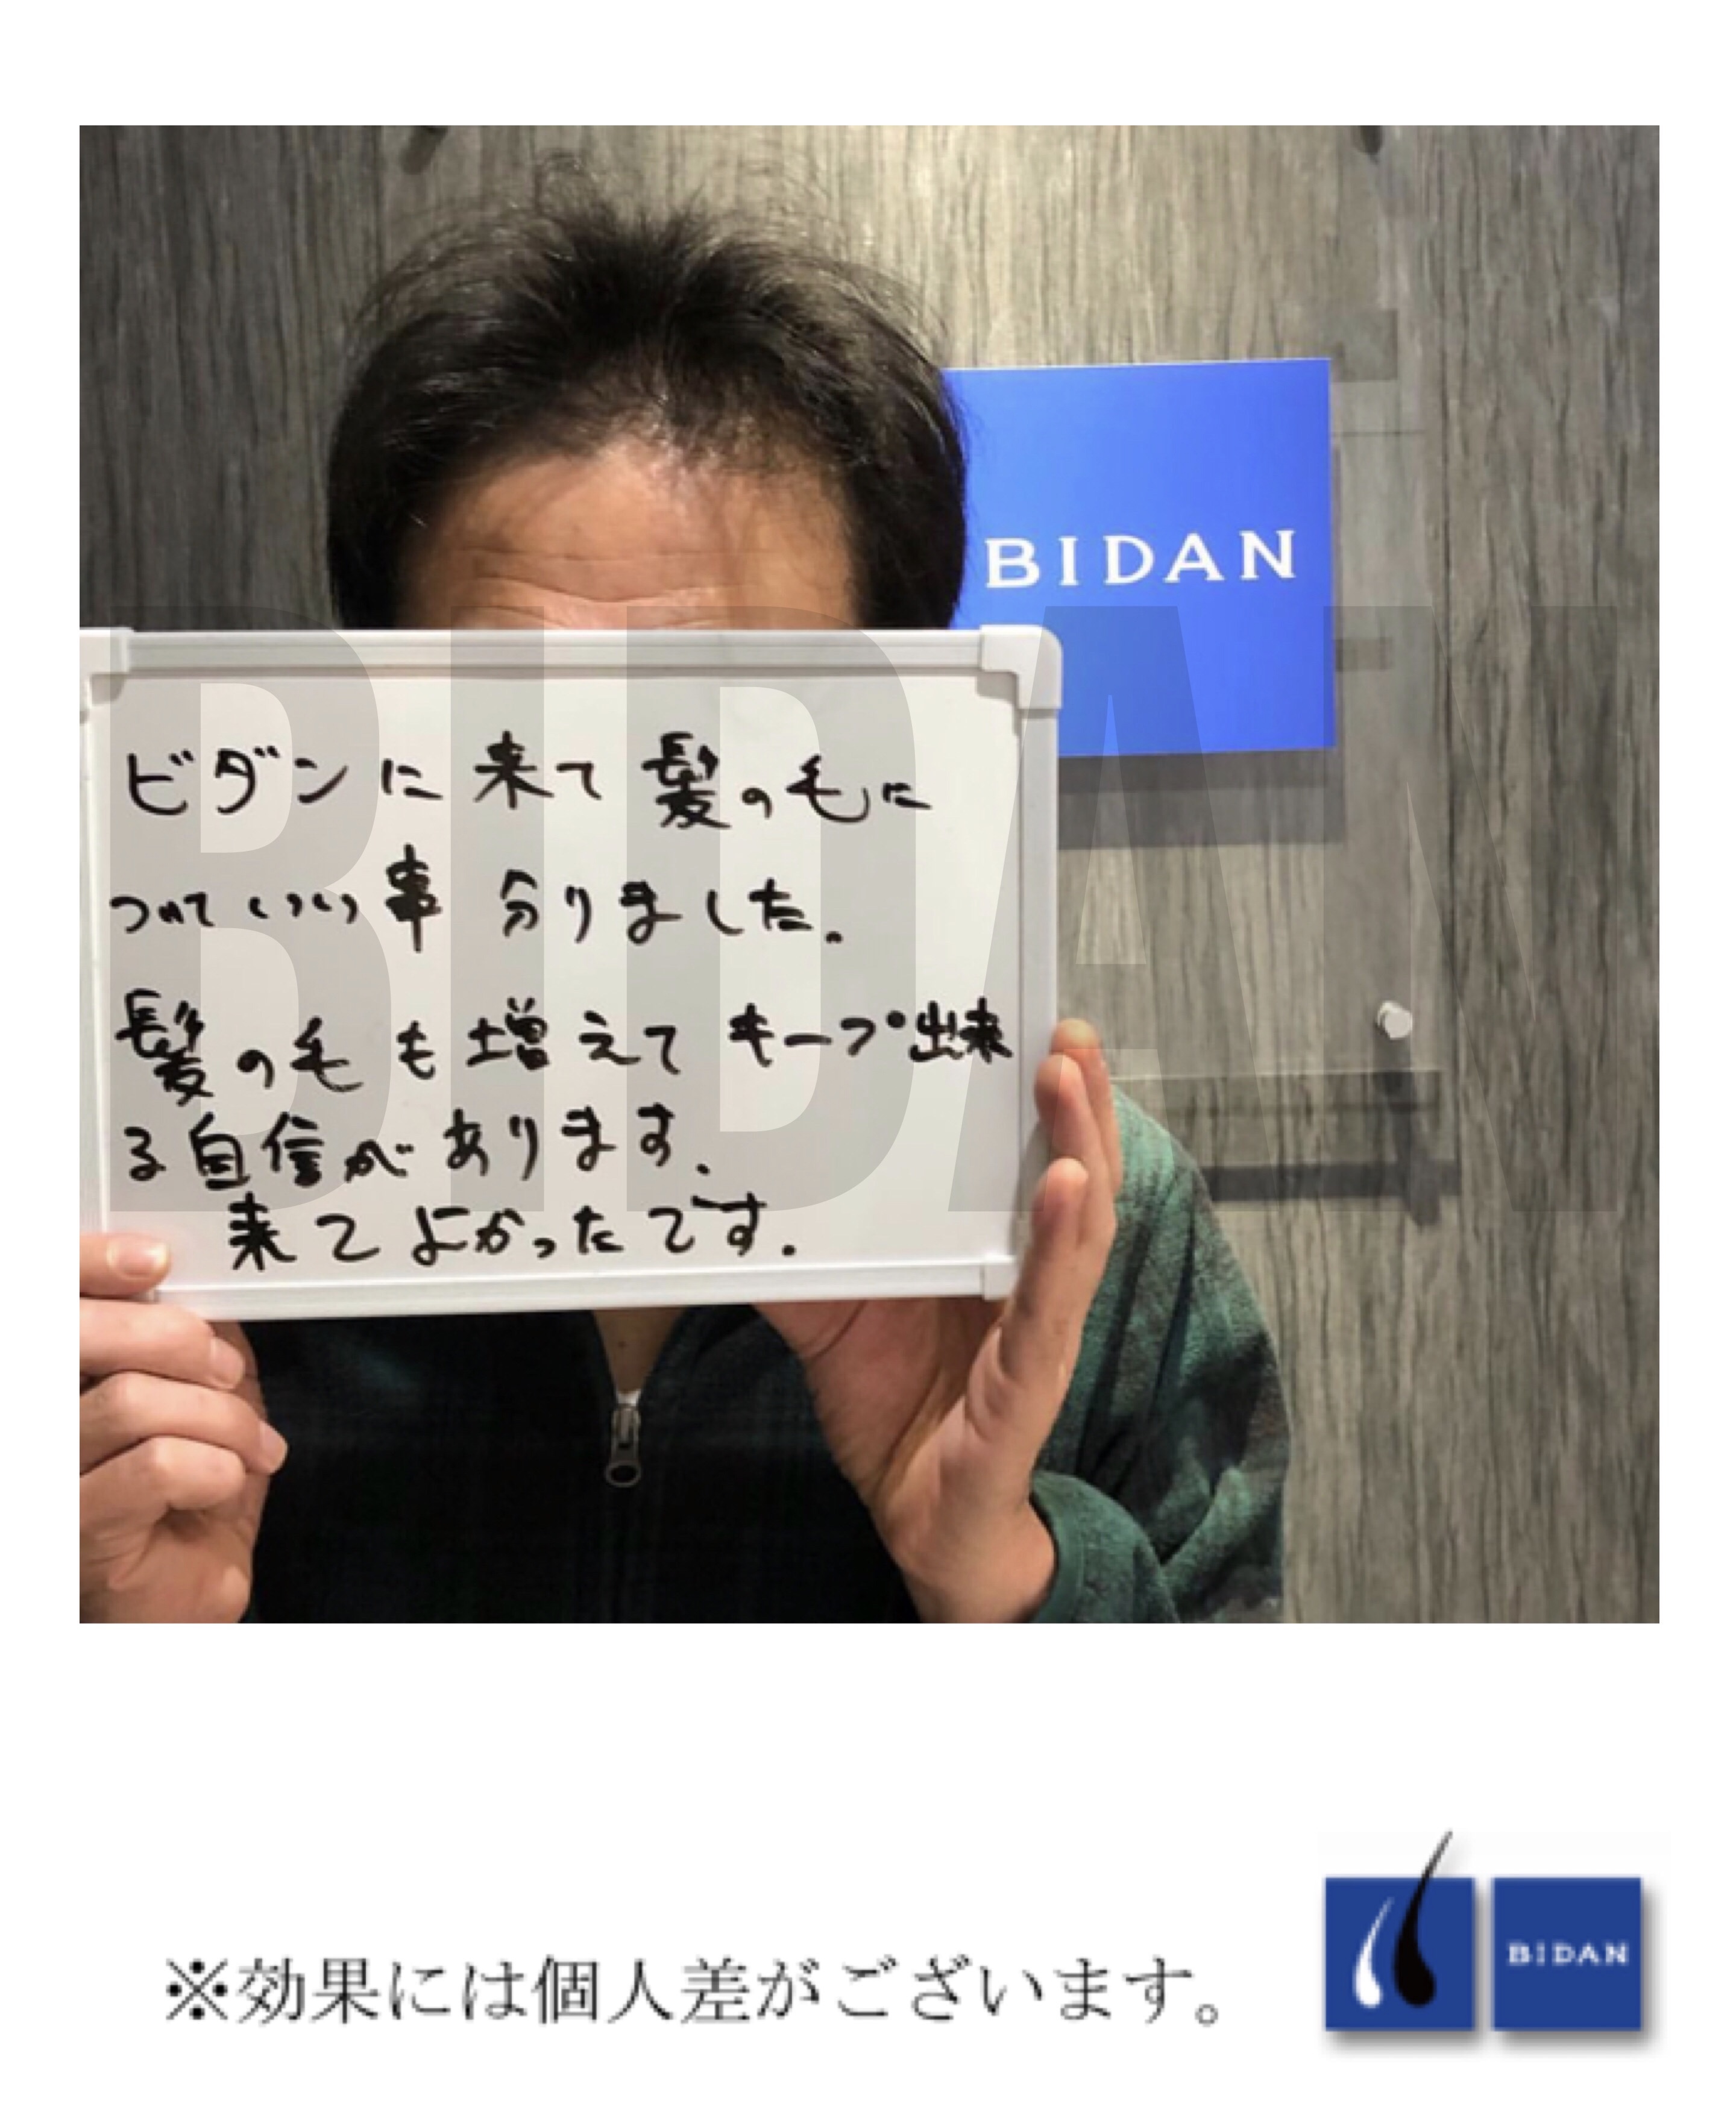 BIDAN
ビダンに来て髪の毛に
ついていい事分りました。
髪の毛も増えてキープ出来
る自信があります。
来てよかったです。
BIDAN
※効果には個人差がございます。
BIDAN